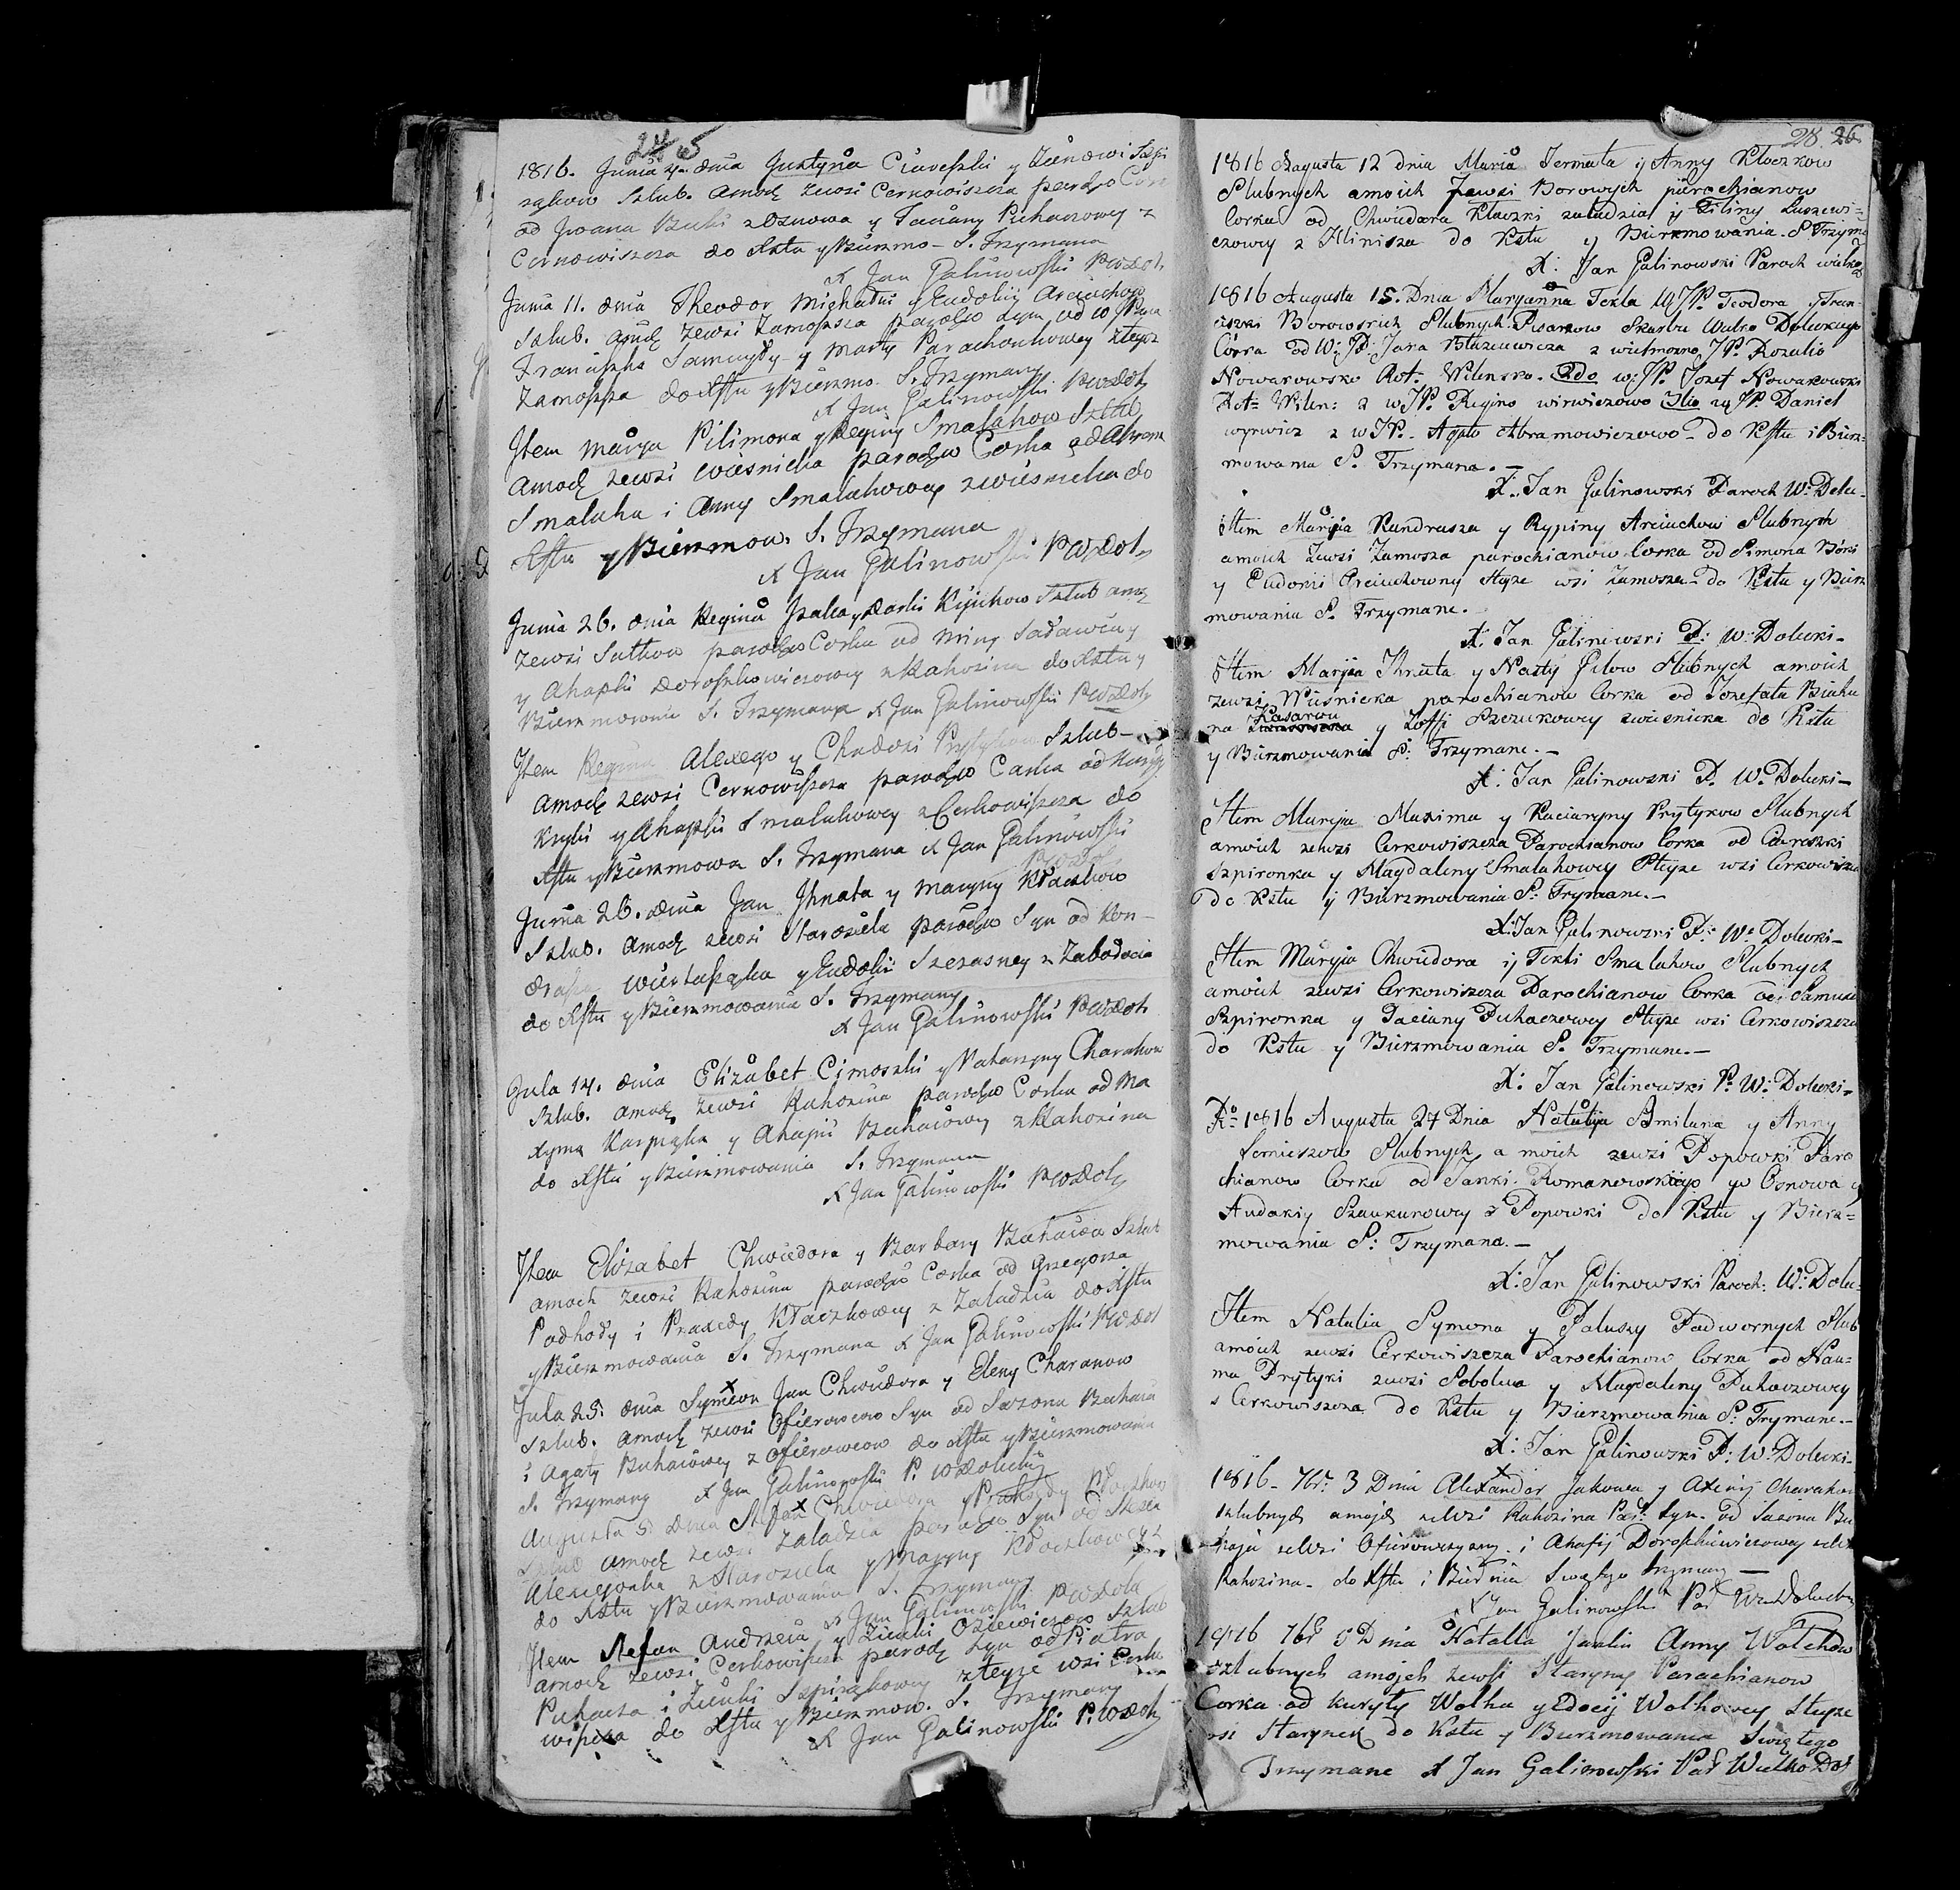 24 5
1816. Junia 4. dnia Justyna Ciareszki y Zienowi Szpi
rąkow Szlub. amoch zewsi Cerkowiszcza parchw Corka
od Jwana Buki zOsnowa y Taciany Puhaczowey z
Cerkowiszcza do Xstu yBierzmo – S. Trzymana
X Jan Galinowski PWDoł.
Junia 11. dnia Theodor Michała y Eudokij Arciuchow
Szlub. amoch zewsi Zamosza parchw Syn od w
Franciszka y Marty Parachonkowey zteyże
Zamosza do Xstu yBierzmo. S. Trzymany
X Jan Galinowski PWDoł
Jtem Marya Pilimona yReginy Smalahow Szlub
amoch zewsi Wiesnicka parochw Corka od Abrama
Smalaha i Anny Smalahowey zwiesnicka do
Xstu yBierzmow. S. Trzymana
X Jan Galinowski PWDoł
Junia 26. dnia Regina yDarki Kijukow Szlub amoch
zewsi Sutkow parochw Corka od
y Ahapki Doroszkowiczowey zRahozina do Xstu y
Bierzmowania S. Trzymana X Jan Galinowski PWDoł
Jtem Regina Alexego y Chadosi Prytykow Szlub –
amoch zewsi Cerkowiszcza parochw Corka od
y Ahapki Smalahowey zCerkowiszcza do
Xstu yBierzmowa S. Trzymana X Jan Galinowski
PWDoł
Junia 26. dnia Jan Jhnata y Maryny Kłaczkow
Szlub. amoch zewsi Starosiela parochw Syn od Kon–
drasza y Eudokii Szczasney z Zabałocia
do Xstu yBierzmowania S. Trzymany
X Jan Galinowski PWDoł.
Jula 14. dnia Elizabet Cimoszki yKatarzyny Charakow
Szlub. amoch zewsi Rahozina parochw Corka od Ma
xyma Karpiąka y Ahapii Buhaiowey zRahozina
do Xstu yBierzmowania S. Trzymana
X Jan Galinowski PWDoł
Jtem Elizabet Chwiedora y Barbary Buhaiow Szlub
amoch zewsi Rahozina parochw Corka od Grzegorza
Podhoły i Praxedy Kłaczkowey z Załadzia do Xstu
yBierzmowania S. Trzymana X Jan Galinowski PWDoł
Jula 25. dnia Symeon Jan Chwiedora y Eleny Charanow
Szlub. amoch zewsi Ofierowcow Syn od Sazona Buhaia
i Agaty Buhaiowey z Ofierowcow do Xstu yBierzmowania
S. Trzymany X Jan Galinowski P. WDołecki
Augusta 5. dnia Stefan Chwiedora y Praxedy Kłaczkow
Szlub amoch zewsi Załadzia parochw Syn od
Alexieionka z Starosiela yMaryny Kłaczkowey z
do Xstu yBierzmowania S. Trzymany
X Jan Galinowski PWDoła
Jtem Stefan Andrzeia y Zienki Osiewiczow Szlub
amoch zewsi Cerkowiszcza paroch Syn od Piatra
Puhacza i Zienki Szpirąkowey zteyże wsi Cerko
wiszcza do Xstu yBierzmow. S. Trzymany
X Jan Galinowski P.WDoł
28. 26
1816 Augusta 12 dnia Maria Jermata ij Anny Kłoczkow
Slubnych amoich zewsi Borowych parochianow
Corka od Chwiedara Kłaczki załadzia ij Luszewi=
czowey z Hlinisza do Kstu y Bierzmowania S Trzyma
X: Jan Galinowski Paroch wielko
1816 Augusta 15. Dnia Maryanna Tekla WJP. Teodora yFran=
ciszki Borowskich Slubnych. Pisarzow Skarbu Wielko Doleckiego
Córka od W: JP: Jana Błażeiewicza z wielmozno JP. Rozalio
Nowakowsko Rot. Wilensko. 2do w: JP. Jozef Nowakowski
Rot= Wilen: z wJP. Regino wirwiczowo 3tio wJP. Daniel
wyrwicz z w JP. Agato Abramowiczowo– do Kstu i Bierz=
mowania S. Trzymana. –
X. Jan Galinowski Paroch W: Dole–
Jtem Maryia Kundrasza y Ahypiny Arciuchow Slubnych
amoich Zewsi Zamosza parochianow Corka od Simona Bóki
y Eudokii Arciuchowny steyze wsi Zamosza– do Kstu y Bierz
mowania S. Trzymane.–
X: Jan Galinowski P: W: Dolecki–
Jtem Maryia Jhnata y Nasty Gilow Slubnych amoich
zewsi Wiesnicka parochianow Corka od Jozefata Biela
na Kasarow y Zoffi Szczukowey zwiesnicka do Kstu
y Bierzmowania S: Trzymane.–
X: Jan Galinowski P. W: Dolecki–
Jtem Maryia Maxima y Kaciaryny Prytykow Slubnych
amoich zewsi Cerkowiszcza Parochianow Corka od Ciareszki
Szpironka y Magdaleny Smalahowey Steyze wsi Cerkowiszcza
do Kstu y Bierzmowania S: Trymane.–
X: Jan Galinowski P: W: Dolecki–
Jtem Maryia Chwiedora ij Tekli Smalahow Slubnych
amoich zewsi Cerkowiszcza Parochianow Corka od Samuela
Szpironka y Daciany Puhaczowey Steyze wsi Cerkowiszcza
do Kstu y Bierzmowania S. Trzymane.–
X: Jan Galinowski P: W: Dolecki–
Ro 1816 Augusta 27 Dnia Natalija Amiliana y Anny
Semieszow Slubnych a moich zewsi Popowki Paro
chianow Corka od Janki Romanowskiego Osnowa y
Audokiy Szaukunowey z Popowki do Kstu y Bierz=
mowania S: Trzymana.–
X: Jan Galinowski Paroch: W: Dole–
Jtem Natalia Symona y Paluszy Padwornych Slub
amoich zewsi Cerkowiszcza Parochianow Corka od Nau=
ma Prytyki zewsi Sobolewa y Magdaleny Puhaczowey
s Cerkowiszcza do Kstu y Bierzmowania S: Trymane.–
X: Jan Galinowski P: W: Dolecki–
1816– 7br: 3 Dnia Alexandor Jakowa y Axenij Charakow
szlubnych amojch zewsi Rahozina Par: Syn. od Sazona Bu
haja zewsi Ofierowszyzny. i Ahafij Doroszkiewiczowey zewsi
Rahozina– do Xstu i Bierźnia Swiętego trzymany –
X Jan Galinowski Par WielDołecki
1816 7br 5 Dnia Natalla Jwalia Anny Wołchow
szlubnych amojch zewsi Staryny Parachianow
Corka od kuryły Wołka yEdocij Wołkowey Steyze
wsi Starynek do Kstu y Bierzmowania Swiętego
Trzymane X Jan Galinowski Par Wielko Doł